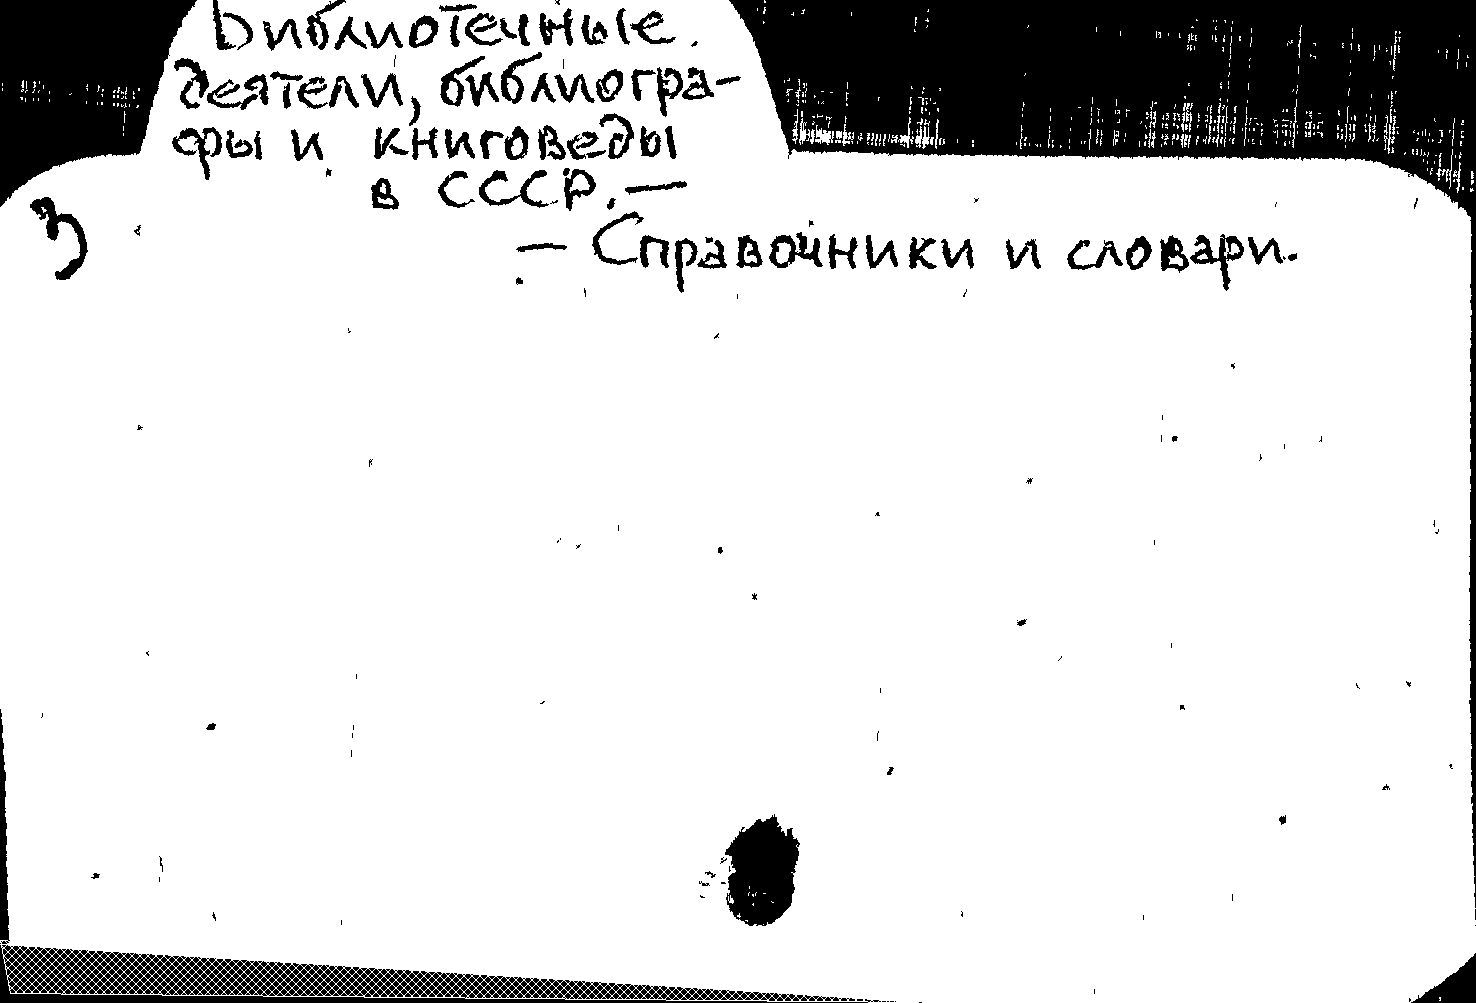 Библиотечные
деятели, библиогра-
фы и книговеды
в СССР. —
— Справочники и словари.